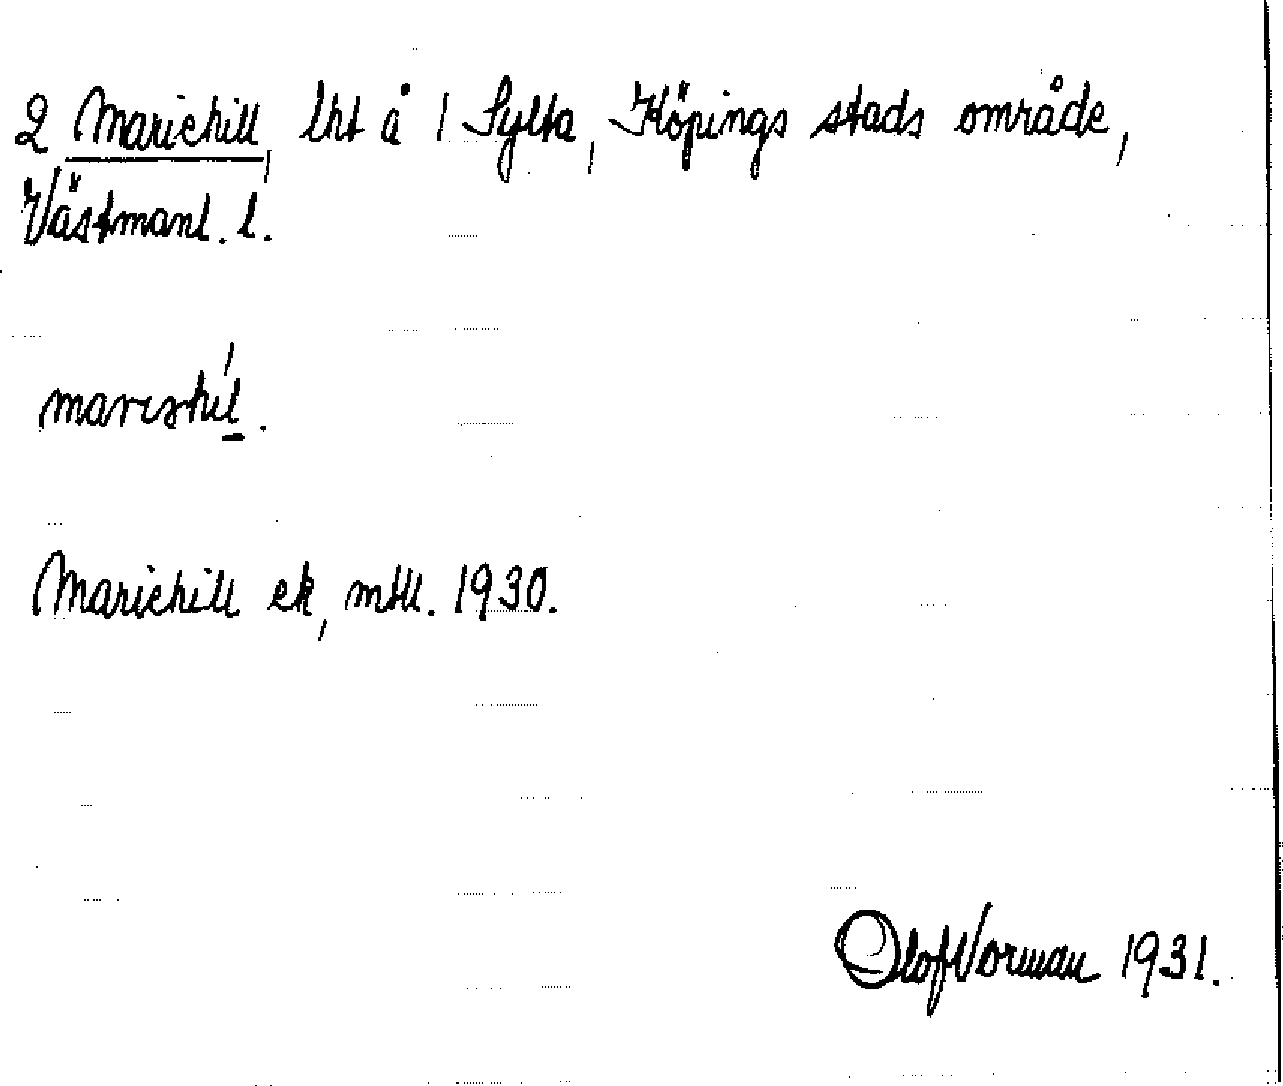 2 Mariehill, lht å 1 Sylta, Köpings stads område,
Västmanl. l.
Mariehill ek, mtll. 1930.
Olof Norman 1931.